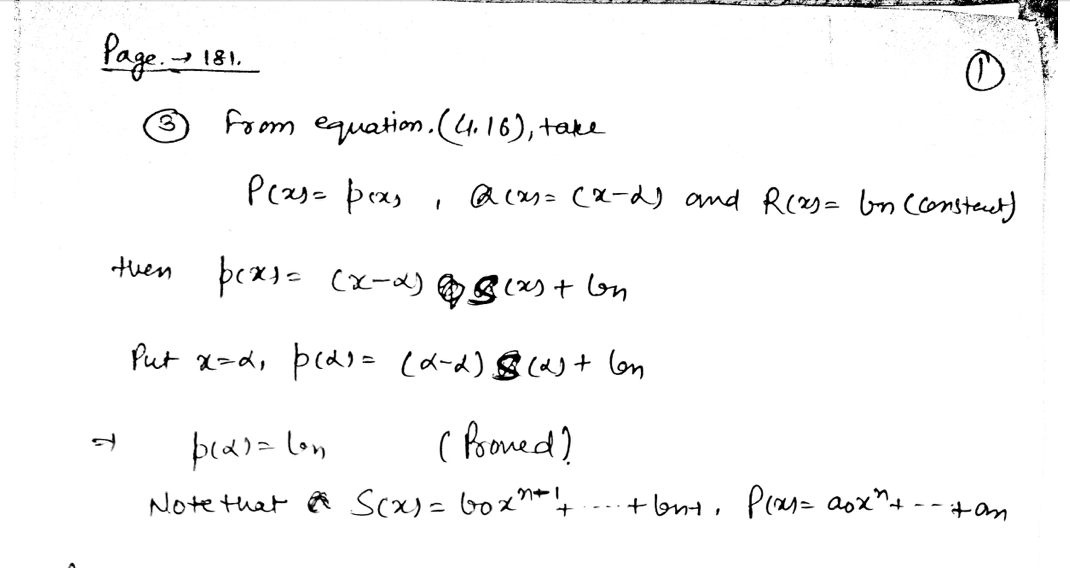 Page. → 181.
①
③ From equation.(4.16), take
P(x) = p(x), Q(x) = (x-α) and R(x) = bn (constant)
then p(x) = (x-α) S(x) + bn
Put x=α, p(α) = (α-α) S(α) + bn
⇒ p(α) = bn (Proved)
Note that S(x) = b0x^{n+1} + .... + bn-1, P(x) = a0x^n + -- + an